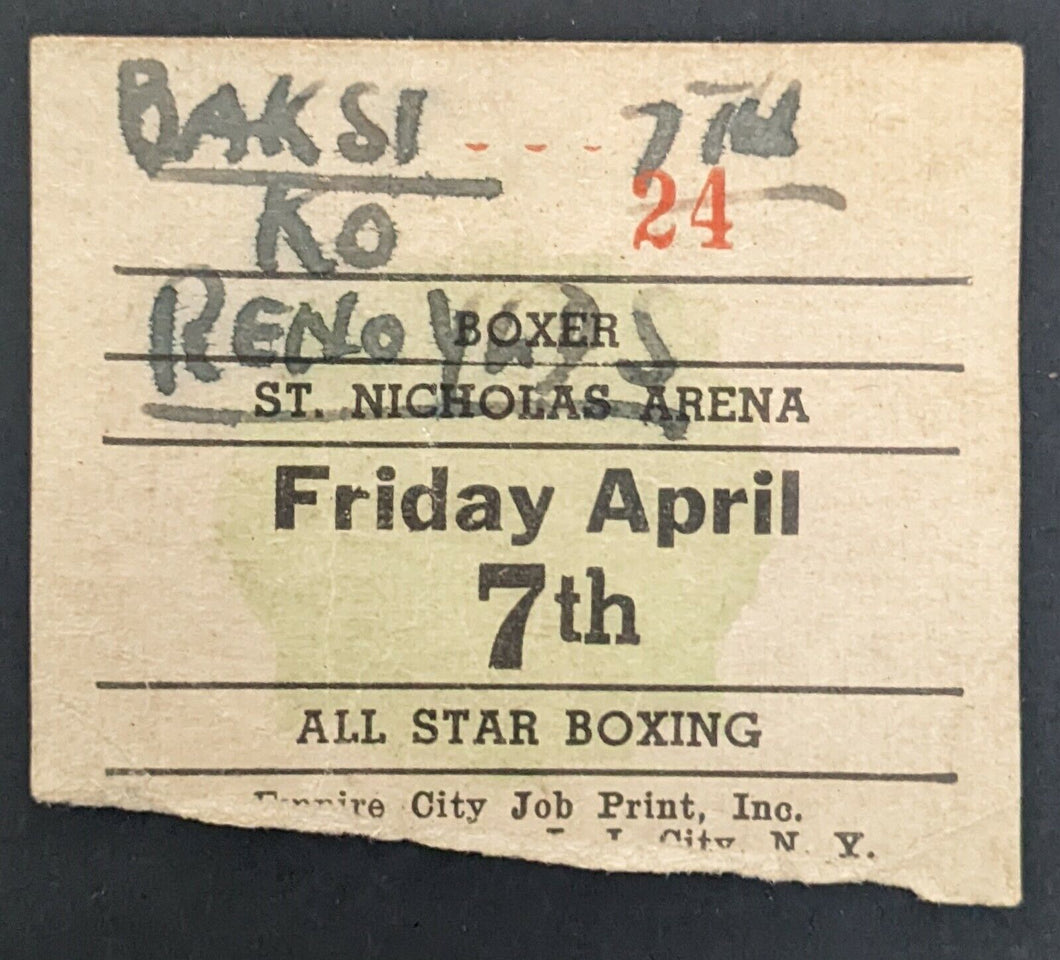 BAKSI - - - 7TH
24
KO
RENO
BOXER
ST. NICHOLAS ARENA
Friday April
7th
ALL STAR BOXING
Empire City Job Print, Inc.
City, N. Y.